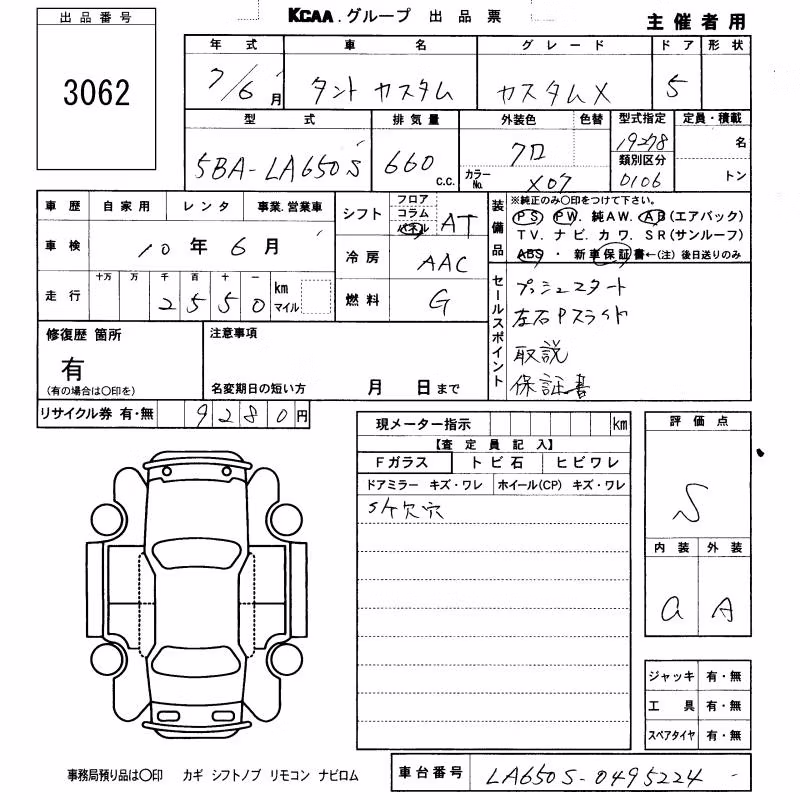 出品番号
3062
KCAA.グループ 出品票
主催者用
年式 車名 グレード ドア 形状
7/6月 タント カスタム カスタムX 5
型式 排気量 外装色 色替 型式指定 定員・積載
5BA-LA650S 660 c.c. クロ 19278 名
カラーNo. X07 類別区分 0106 トン
車歴 自家用 レンタ 事業.営業車
車検 10年6月
走行 十万 万 千 百 十 一 km マイル
2550
シフト フロア コラム パネル AT
冷房 AAC
燃料 G
装備品
※純正のみ○印をつけて下さい。
PS. PW. 純AW. AB(エアバック)
TV. ナビ. カワ. SR(サンルーフ)
ABS ・ 新車保証書←(注) 後日送りのみ
セールスポイント
プッシュスタート
左右Pスライド
取説
保証書
修復歴 箇所
有
(有の場合は○印を)
注意事項
名変期日の短い方 月 日まで
リサイクル券 有・無 9280円
現メーター指示 km
【査定員記入】
Fガラス トビ石 ヒビワレ
ドアミラー キズ・ワレ ホイール(CP) キズ・ワレ
Sケ欠穴
評価点
S
内装 外装
a A
ジャッキ 有・無
工具 有・無
スペアタイヤ 有・無
事務局預り品は○印 カギ シフトノブ リモコン ナビロム
車台番号 LA650S-0495224